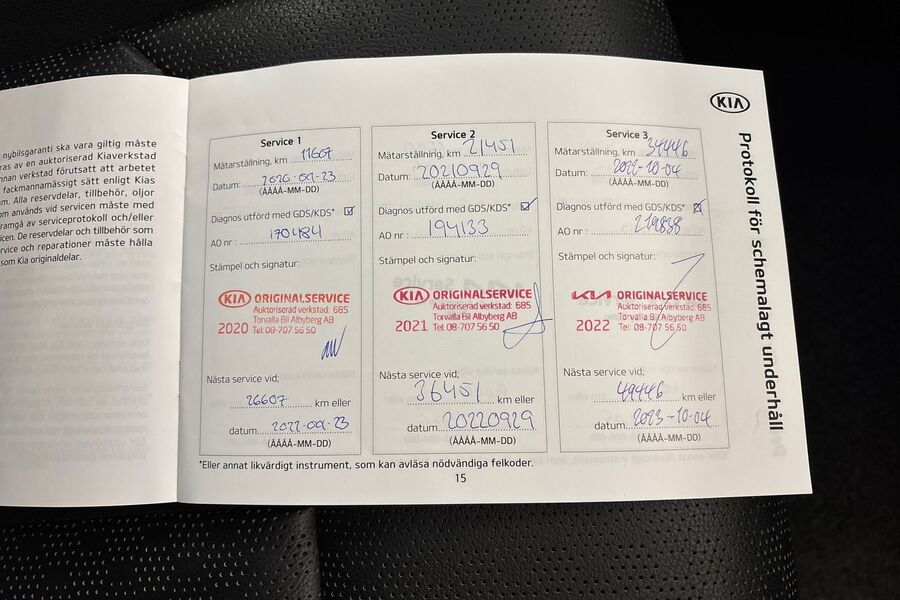 nybilsgaranti ska vara giltig måste
ras av en auktoriserad Kiaverkstad
nnan verkstad förutsatt att arbetet
fackmannamässigt sätt enligt Kias
m. Alla reservdelar, tillbehör, oljor
om används vid servicen måste och
ramgå av serviceprotokoll och/eller
icen. De reservdelar och tillbehör som
rvice och reparationer måste hålla
som Kia originaldelar.
KIA
Protokoll för schemalagt underhåll
Service 1
Mätarställning, km 11607
Datum: 2020-09-23
(ÅÅÅÅ-MM-DD)
Diagnos utförd med GDS/KDS*
AO nr : 170484
Stämpel och signatur:
KIA ORIGINALSERVICE
Auktoriserad verkstad: 685
2020 Torvalla Bil Albyberg AB
Tel: 08-707 56 50
Nästa service vid;
26607 km eller
datum 2022-09-23
(ÅÅÅÅ-MM-DD)
Service 2
Mätarställning, km 21451
Datum: 20210929
(ÅÅÅÅ-MM-DD)
Diagnos utförd med GDS/KDS*
AO nr : 194133
Stämpel och signatur:
KIA ORIGINALSERVICE
Auktoriserad verkstad: 685
2021 Torvalla Bil Albyberg AB
Tel: 08-707 56 50
Nästa service vid;
36451 km eller
datum 20220929
(ÅÅÅÅ-MM-DD)
Service 3
Mätarställning, km 34446
Datum: 2022-10-04
(ÅÅÅÅ-MM-DD)
Diagnos utförd med GDS/KDS*
AO nr : 219838
Stämpel och signatur:
KIA ORIGINALSERVICE
Auktoriserad verkstad: 685
2022 Torvalla Bil Albyberg AB
Tel: 08-707 56 50
Nästa service vid;
49446 km eller
datum 2023-10-04
(ÅÅÅÅ-MM-DD)
*Eller annat likvärdigt instrument, som kan avläsa nödvändiga felkoder.
15